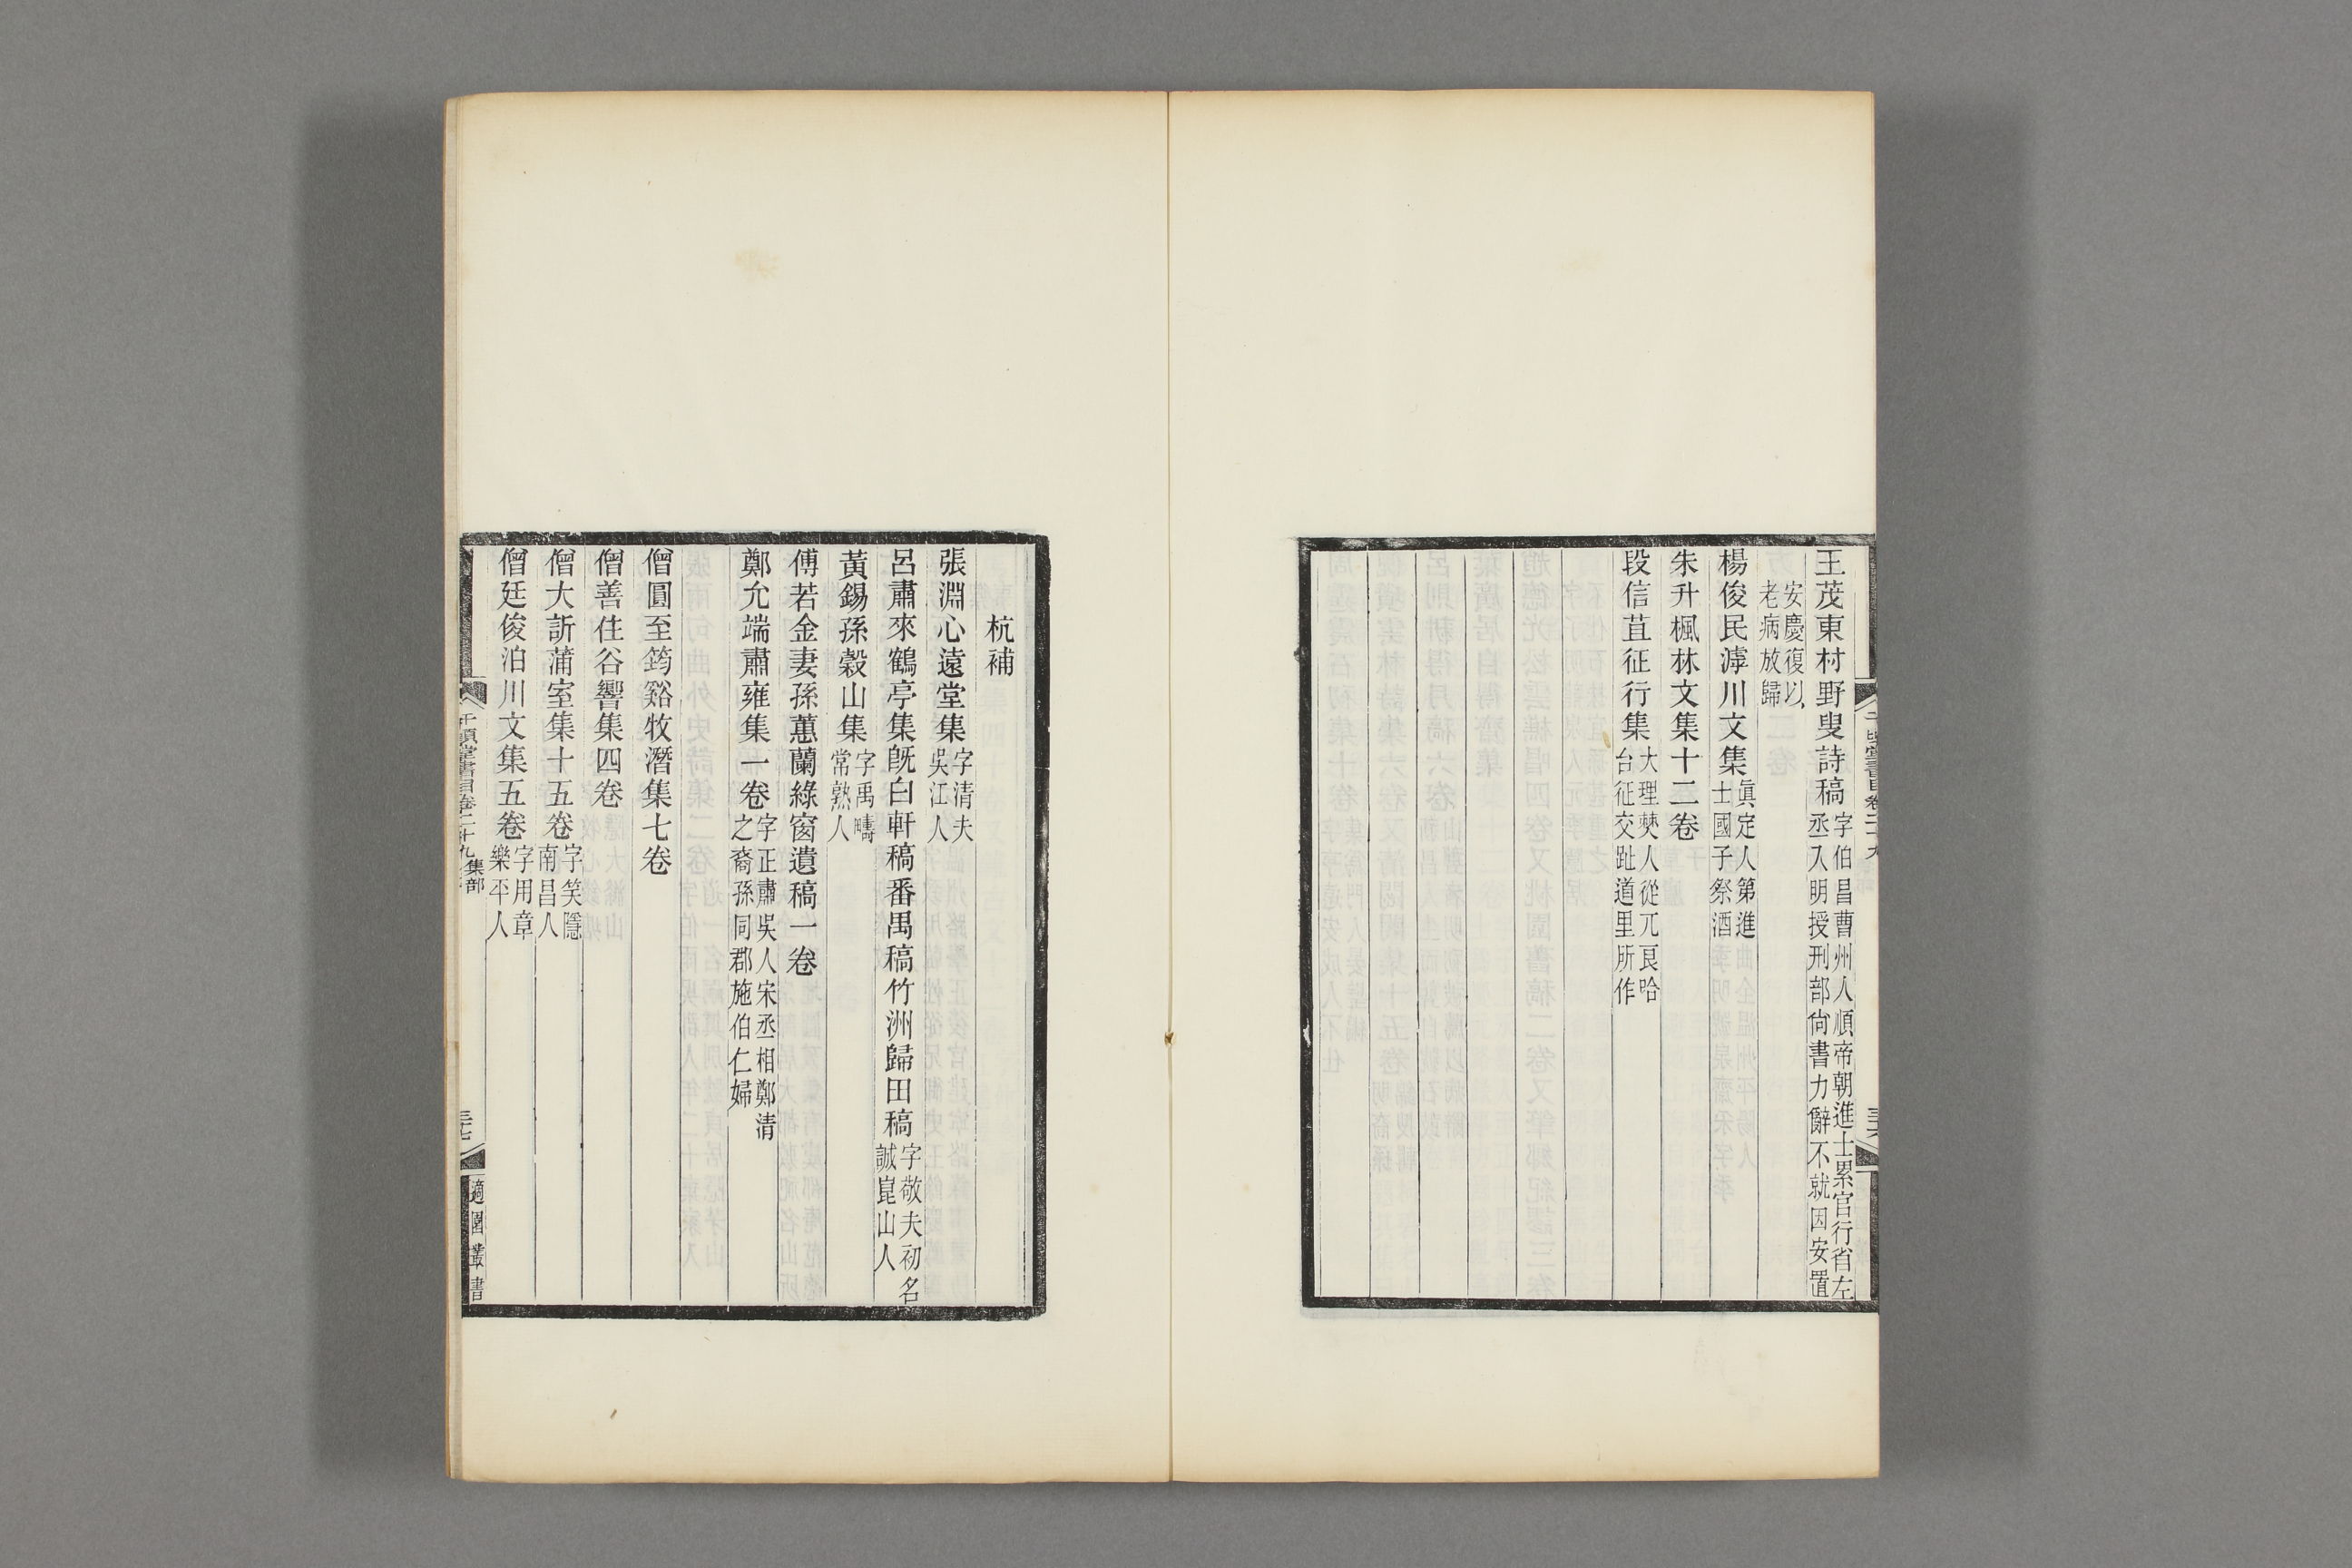 王茂東村野叟詩稿字伯昌曹州人順帝朝進士累官行省左丞入明授刑部尙書力辭不就因安置
安慶復以老病放歸
楊俊民滹川文集眞定人第進士國子祭酒
朱升楓林文集十二卷
段信苴征行集大理僰人從兀良哈台征交趾道里所作
杭補
張淵心遠堂集字清夫吳江人
呂肅來鶴亭集旣白軒稿番禺稿竹洲歸田稿字敬夫初名誠崑山人
黃錫孫穀山集字禹疇常熟人
傅若金妻孫蕙蘭綠窗遺稿一卷
鄭允端肅雍集一卷字正肅吳人宋丞相鄭清之裔孫同郡施伯仁婦
僧圓至筠谿牧潛集七卷
僧善住谷響集四卷
僧大訢蒲室集十五卷字笑隱南昌人
僧廷俊泊川文集五卷字用章樂平人
千頃堂書目卷二十九 集部
三七
適園叢書